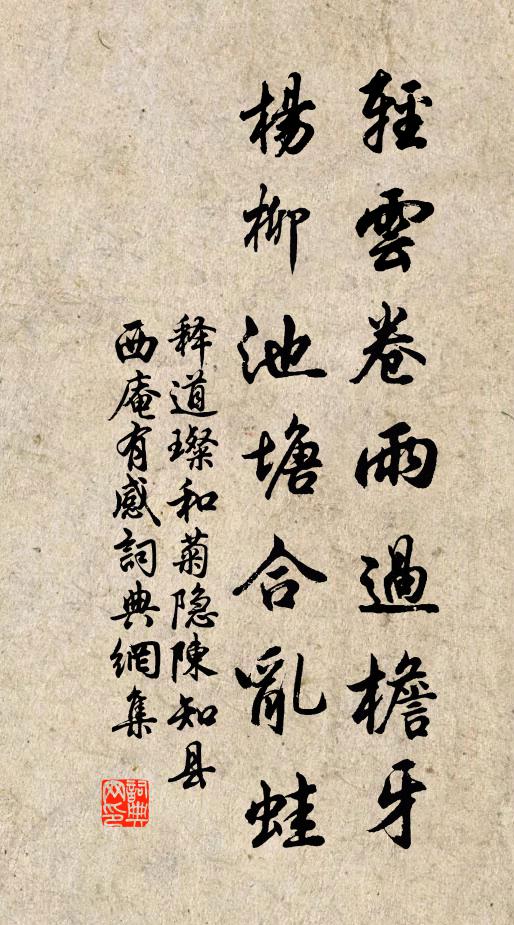 輕雲卷雨過檐牙
楊柳池塘合亂蛙
释道璨和菊隐陳知县
西庵有感詞典網集
詞典
网印